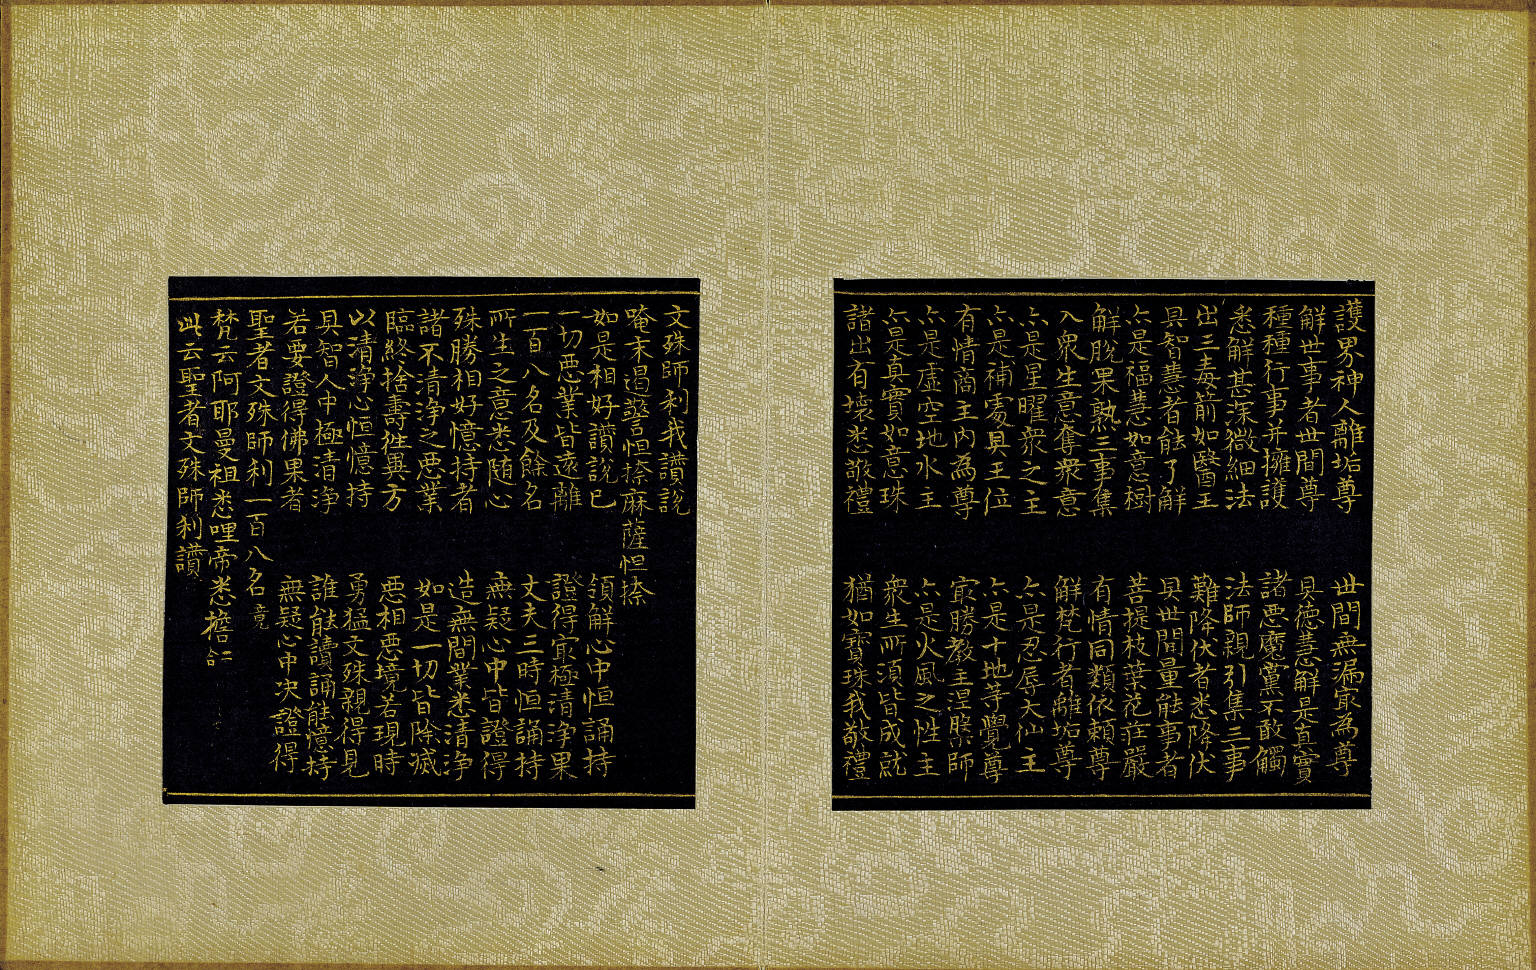 護界神人離垢尊　世間無漏㝡為尊
解世事者世間尊　具德慧解是真實
種種行事并擁護　諸惡魔黨不敢觸
悉解甚深微細法　法師親引集三事
出三毒箭如醫王　難降伏者悉降伏
具智慧者能了解　具世間量能事者
亦是福慧如意樹　菩提枝葉花莊嚴
解脫果熟三事集　有情同類依賴尊
入衆生意奪衆意　解梵行者離垢尊
亦是星曜衆之主　亦是忍辱大仙主
亦是補處具王位　亦是十地等覺尊
有情商主內為尊　㝡勝教主涅槃師
亦是虛空地水主　亦是火風之性主
亦是真實如意珠　衆生所須皆成就
諸出有壞悉敬禮　猶如寶珠我敬禮
文殊師利我讃說
唵末遏讐怛捺麻薩怛捺
如是相好讃說已　領解心中恒誦持
一切惡業皆遠離　證得㝡極清淨果
一百八名及餘名　丈夫三時恒誦持
所生之意悉随心　無疑心中皆證得
殊勝相好憶持者　造無間業悉清淨
諸不清淨之惡業　如是一切皆除滅
臨終捨壽徃異方　惡相惡境若現時
以清淨心恒憶持　勇猛文殊親得見
具智人中極清淨　誰能讀誦能憶持
若要證得佛果者　無疑心中决證得
聖者文殊師利一百八名竟
梵云阿耶曼祖悉哩帝悉擔二合
此云聖者文殊師利讃